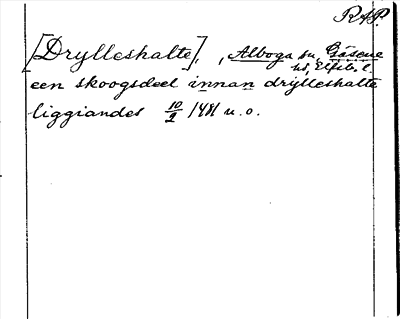 RAP.
[Drylleshalte], , Alboga sn, Gäsene
hd, Elfsb. l.
een skoogsdeel innan drijlleshalte
liggiandes 10/2 1481 u.o.